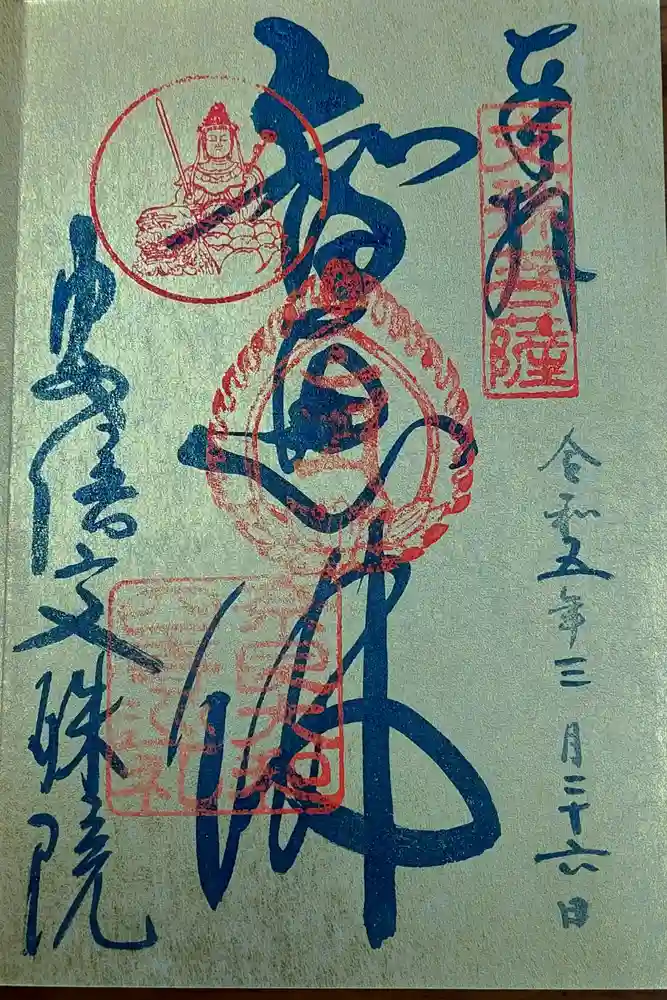 奉拝
文殊菩薩
令和五年三月二十六日
智恵佛
安倍文殊院